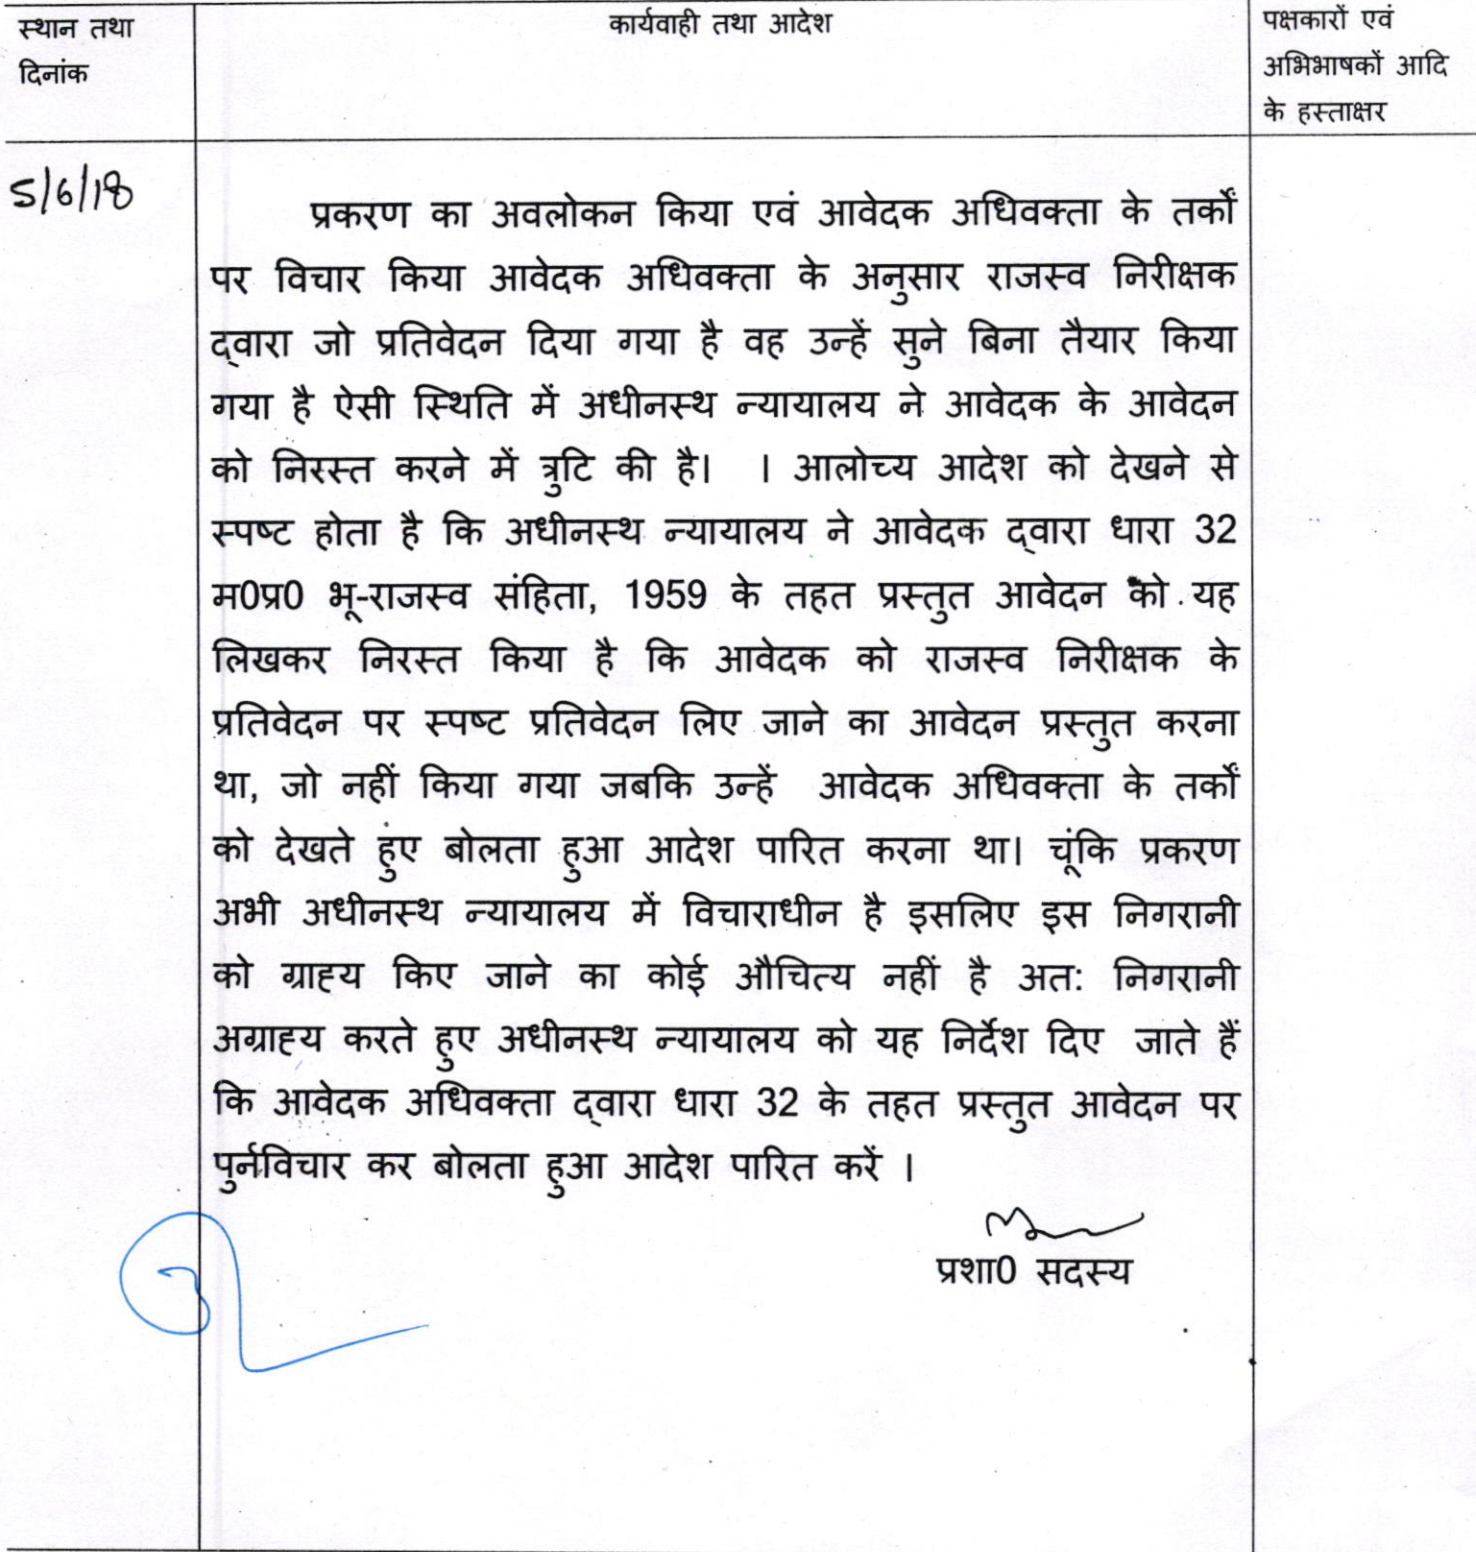 स्थान तथा
दिनांक
कार्यवाही तथा आदेश
पक्षकारों एवं
अभिभाषकों आदि
के हस्ताक्षर
5/6/18
प्रकरण का अवलोकन किया एवं आवेदक अधिवक्ता के तर्कों
पर विचार किया आवेदक अधिवक्ता के अनुसार राजस्व निरीक्षक
द्वारा जो प्रतिवेदन दिया गया है वह उन्हें सुने बिना तैयार किया
गया है ऐसी स्थिति में अधीनस्थ न्यायालय ने आवेदक के आवेदन
को निरस्त करने में त्रुटि की है। । आलोच्य आदेश को देखने से
स्पष्ट होता है कि अधीनस्थ न्यायालय ने आवेदक द्वारा धारा 32
म0प्र0 भू-राजस्व संहिता, 1959 के तहत प्रस्तुत आवेदन को यह
लिखकर निरस्त किया है कि आवेदक को राजस्व निरीक्षक के
प्रतिवेदन पर स्पष्ट प्रतिवेदन लिए जाने का आवेदन प्रस्तुत करना
था, जो नहीं किया गया जबकि उन्हें आवेदक अधिवक्ता के तर्कों
को देखते हुए बोलता हुआ आदेश पारित करना था। चूंकि प्रकरण
अभी अधीनस्थ न्यायालय में विचाराधीन है इसलिए इस निगरानी
को ग्राह्य किए जाने का कोई औचित्य नहीं है अत: निगरानी
अग्राह्य करते हुए अधीनस्थ न्यायालय को यह निर्देश दिए जाते हैं
कि आवेदक अधिवक्ता द्वारा धारा 32 के तहत प्रस्तुत आवेदन पर
पुर्नविचार कर बोलता हुआ आदेश पारित करें ।
प्रशा0 सदस्य